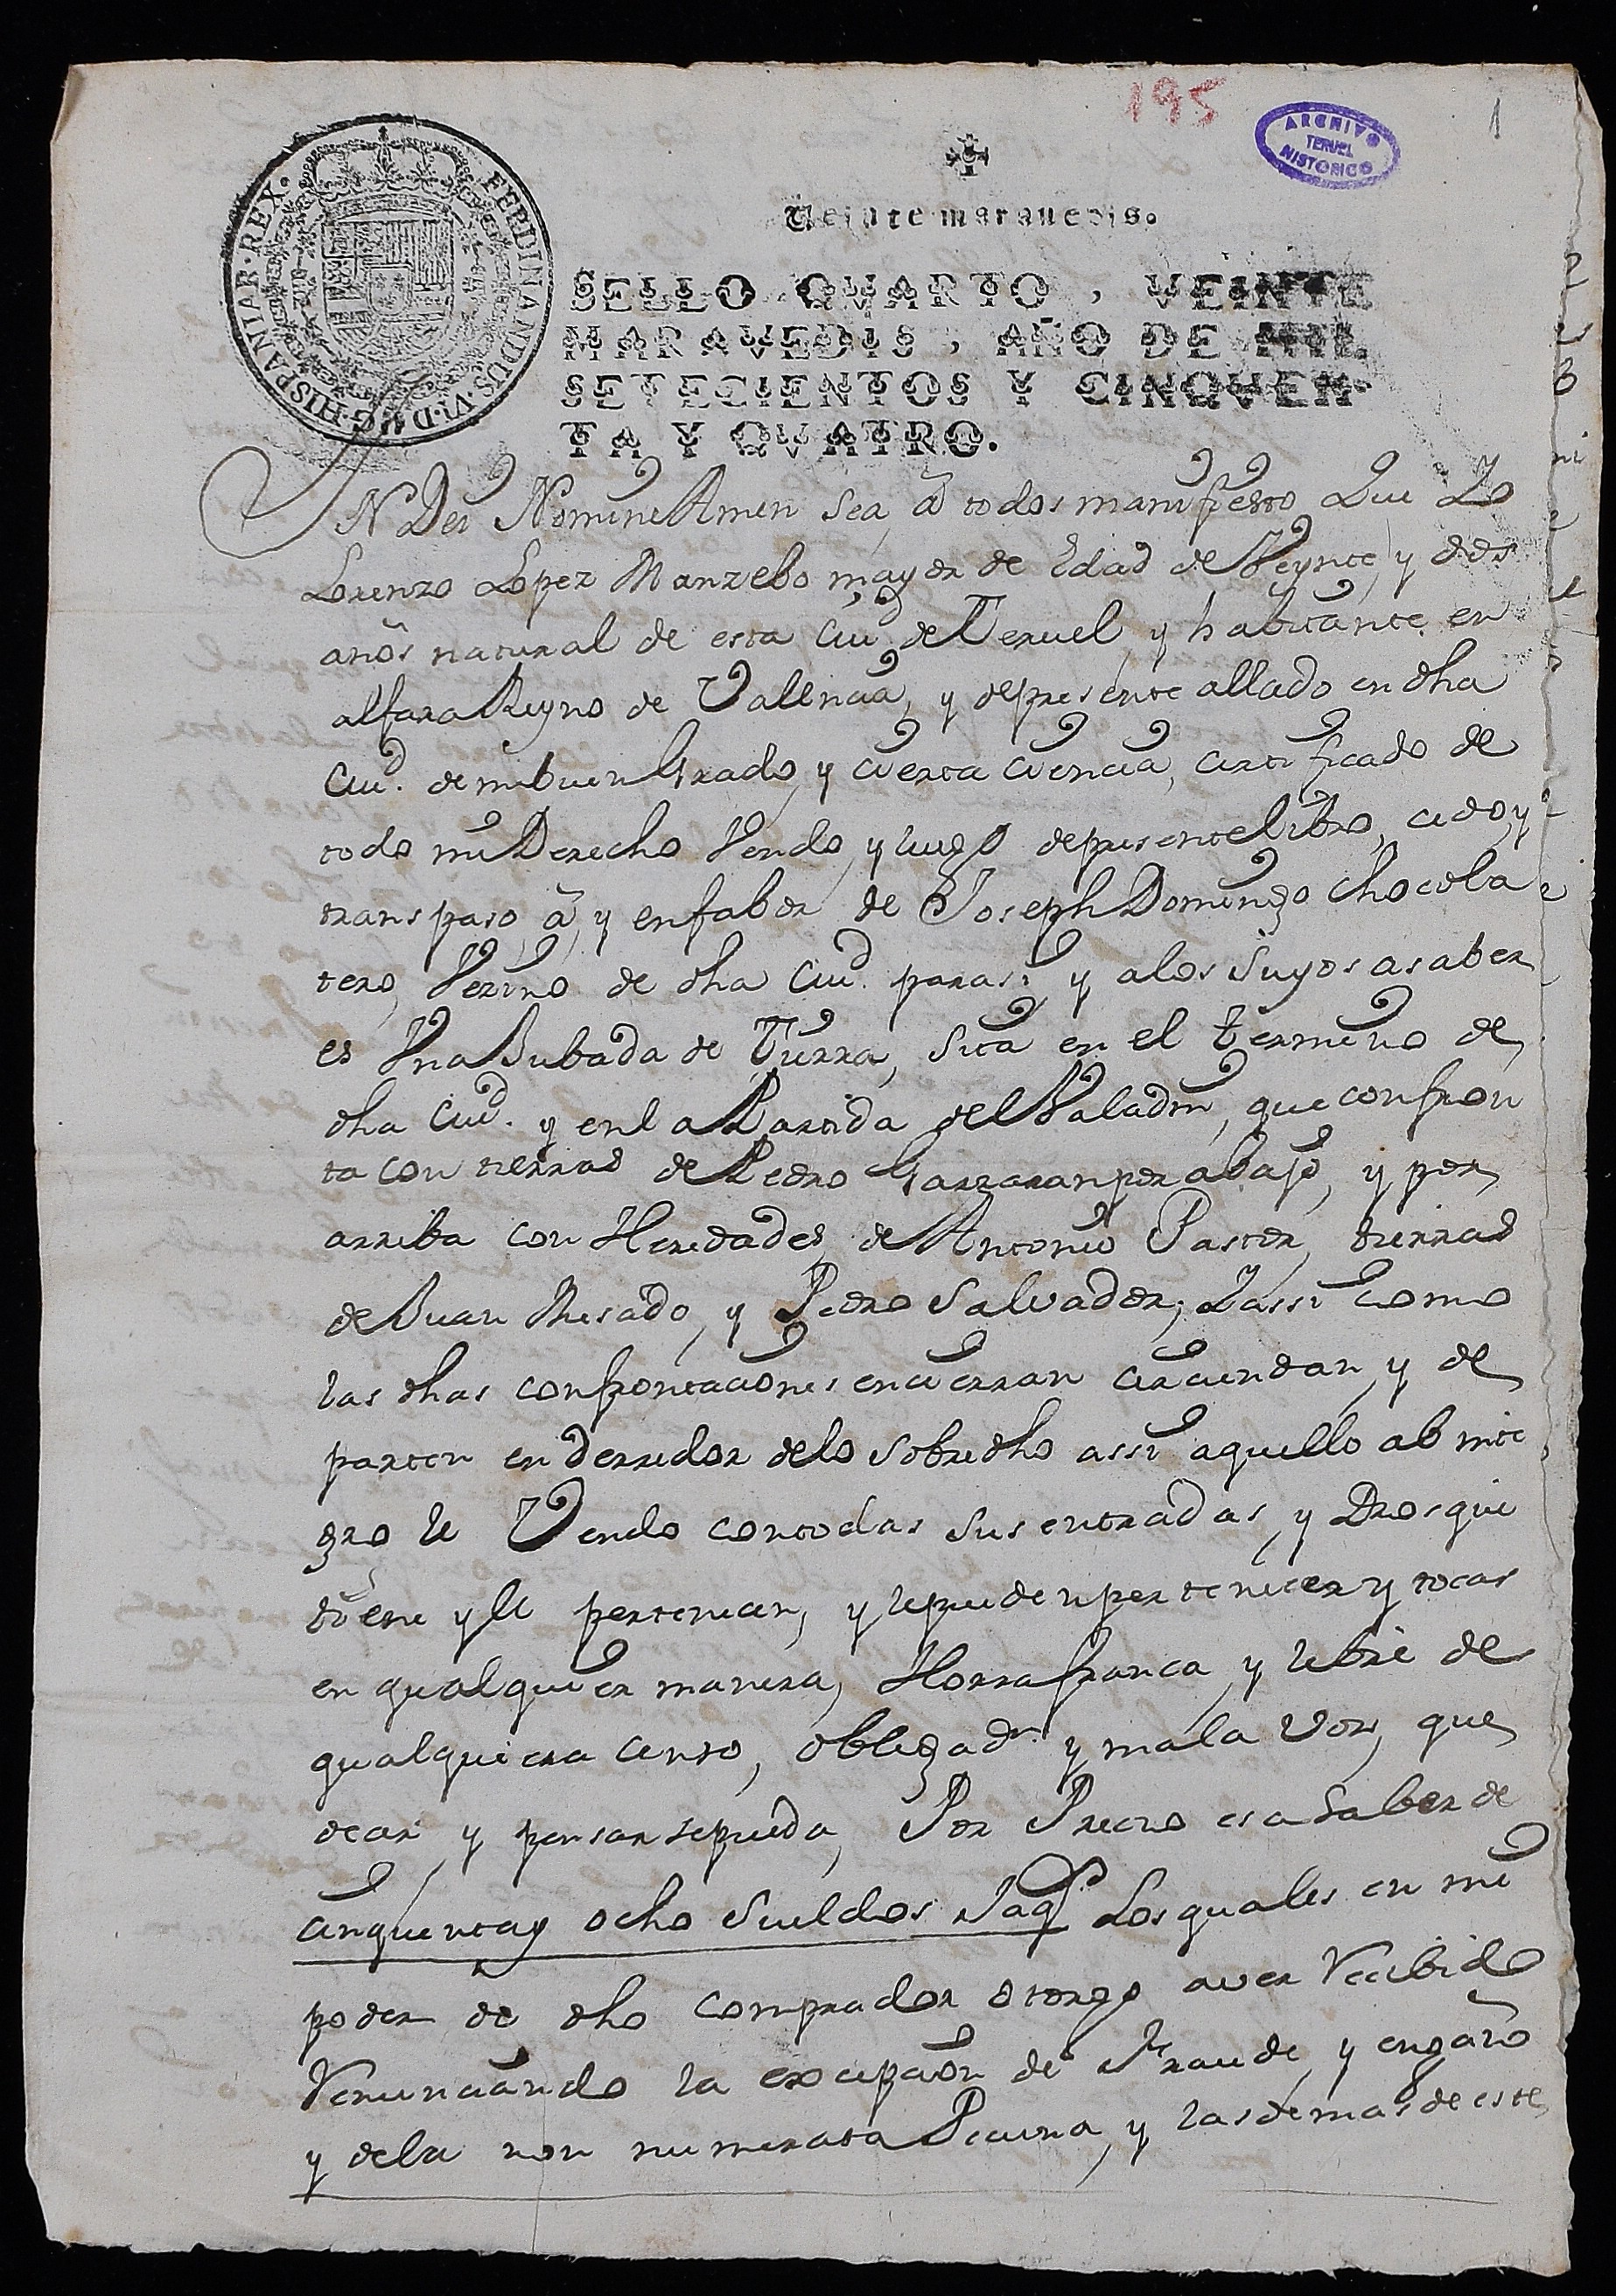 195
1
ARCHIVO
TERUEL
HISTORICO
FERDINANDUS·VI·D·G·HISPANIAR·REX·
Veinte marauedis.
SELLO QVARTO, VEINTE
MARAVEDIS, AÑO DE MIL
SETECIENTOS Y CINQVEN-
TA Y QVATRO.
IN Dei Nomine Amen Sea, â todos manifiesto Que Yo
Lorenzo Lopez Manzebo mayor de Edad de Veynte, y dos
años natural de esta Ciud de Teruel, y habitante en
alfara Reyno de Valencia, y depresente allado en dha
Ciud. de mi buen Grado, y cierta ciencia, certificado de
todo mi Derecho Vendo, y luego depresente libro, cedo, y
transpaso, â, y enfabor de Joseph Domingo Chocola
tero, Vezino de dha Ciud. parasi, y alos Suyos asaber
es Vna Jubada de Tierra, Sita en el termino de
dha Ciud. y enla Partida del Valadin, que confron
ta con tierras de Pedro Garzaran por abajo, y por
arriba con Heredades de Antonio Pastor, tierras
de Juan Mesado, y Pedro Salvador; Yassi como
las dhas confrontaciones encierran circundan, y de
parten en derredor delo Sobredho assi aquello ab inte
gro le Vendo contodas Sus entradas, y Dros que
tiene yle pertenecen, y lepueden pertenecer y tocar
en qualquier manera, Horra franca, y libre de
qualquiera censo, obligad.n y mala voz, que
decir, y pensar sepueda, Por Precio es a Saber de
cinquentay ocho Sueldos Jaq.s Los quales en mi
poder de dho comprador otorgo aver Recibido
Renunciando la excepcion de Fraude, y engaño
y dela non numerata Pecunia, y lasdemas de este